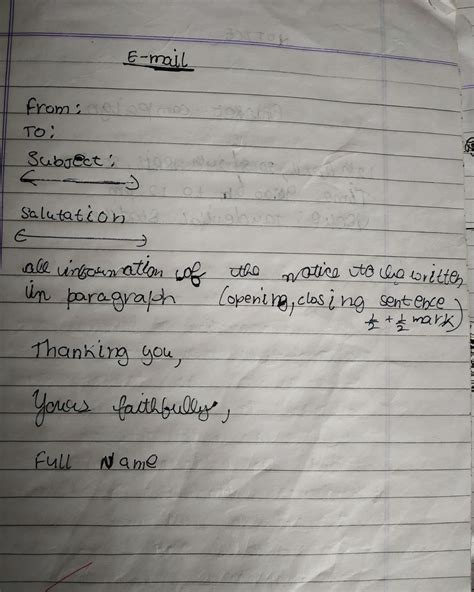 E-mail
From:
To:
Subject:
Salutation
all information of the notice to be written
in paragraph (opening, closing sentence
½ + ½ mark)
Thanking you,
Yours faithfully,
Full Name